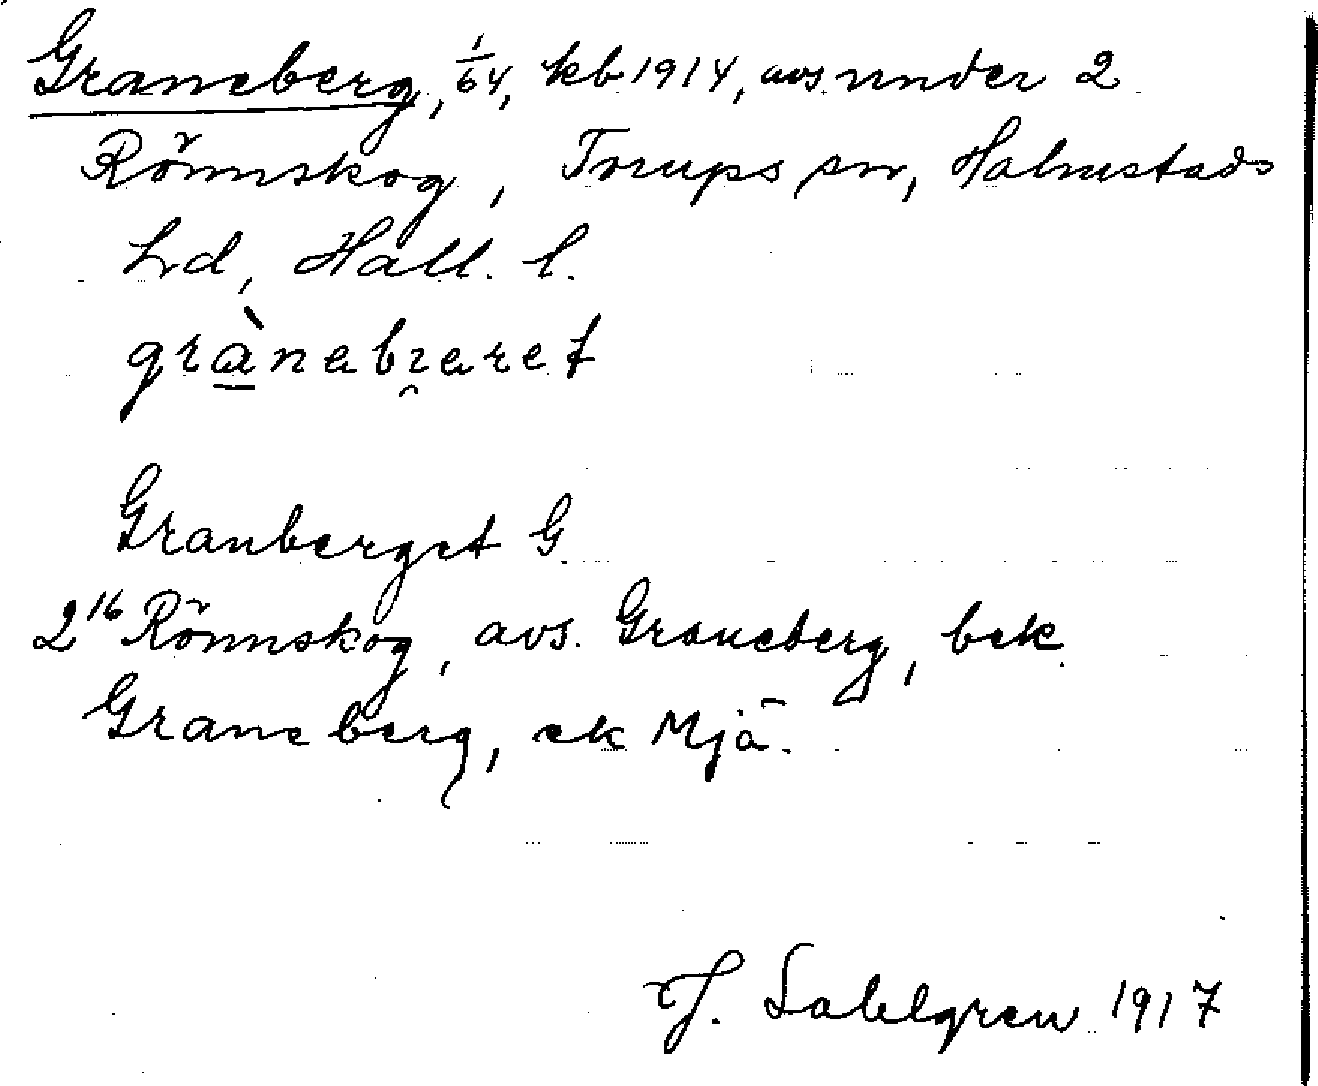 Graneberg, 1/64, kb 1914, avs under 2
Rönnskog, Torups sn, Halmstads
hd, Hall. l.
grànebæret
Granberget G
2¹⁶ Rönnskog, avs. Graneberg, bek
Graneberg, ek Mjä.
J. Sahlgren 1917